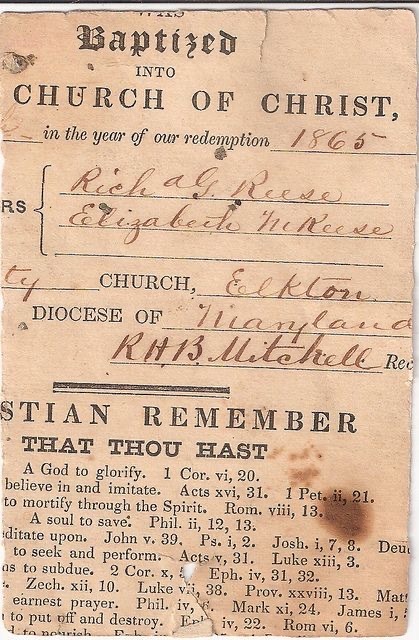 WAS
Baptized
INTO
CHURCH OF CHRIST,
in the year of our redemption 1865
Rich d G Reese
RS
Elizabeth M Reese
ty CHURCH, Elkton
DIOCESE OF Maryland
R.H.B. Mitchell Rec
STIAN REMEMBER
THAT THOU HAST
A God to glorify. 1 Cor. vi, 20.
believe in and imitate. Acts xvi, 31. 1 Pet. ii, 21.
to mortify through the Spirit. Rom. viii, 13.
A soul to save. Phil. ii, 12, 13.
editate upon. John v. 39. Ps. i, 2. Josh. i, 7, 8. Deu
to seek and perform. Acts v, 31. Luke xiii, 3.
s to subdue. 2 Cor. x, Eph. iv, 31, 32.
. Zech. xii, 10. Luke vii, 38. Prov. xxviii, 13. Mat
earnest prayer. Phil. iv, 6. Mark xi, 24. James i, 
to put off and destroy. Eph iv, 22. Rom vi, 6.
nourish